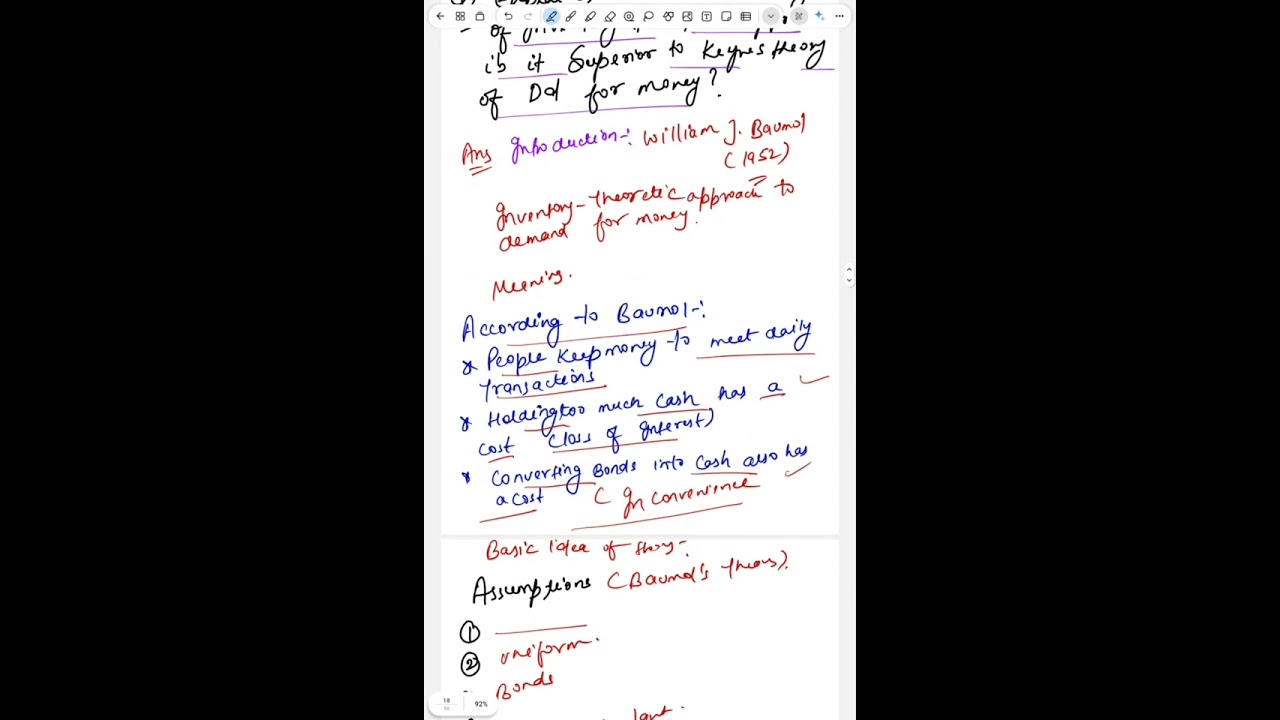 of
is it Superior to Keynes theory
of Dd for money?
Ans Introduction:- William J. Baumol
(1952)
Inventory-theoretic approach to
demand for money.
Meaning.
According to Baumol-:
* People Keep money to meet daily
transactions
* Holding too much cash has a
cost (loss of interest)
* Converting Bonds into cash also has
a cost ( Inconvenience
Basic idea of theory-:
Assumptions (Baumol's theory).
①
② uniform.
Bonds
18
92%